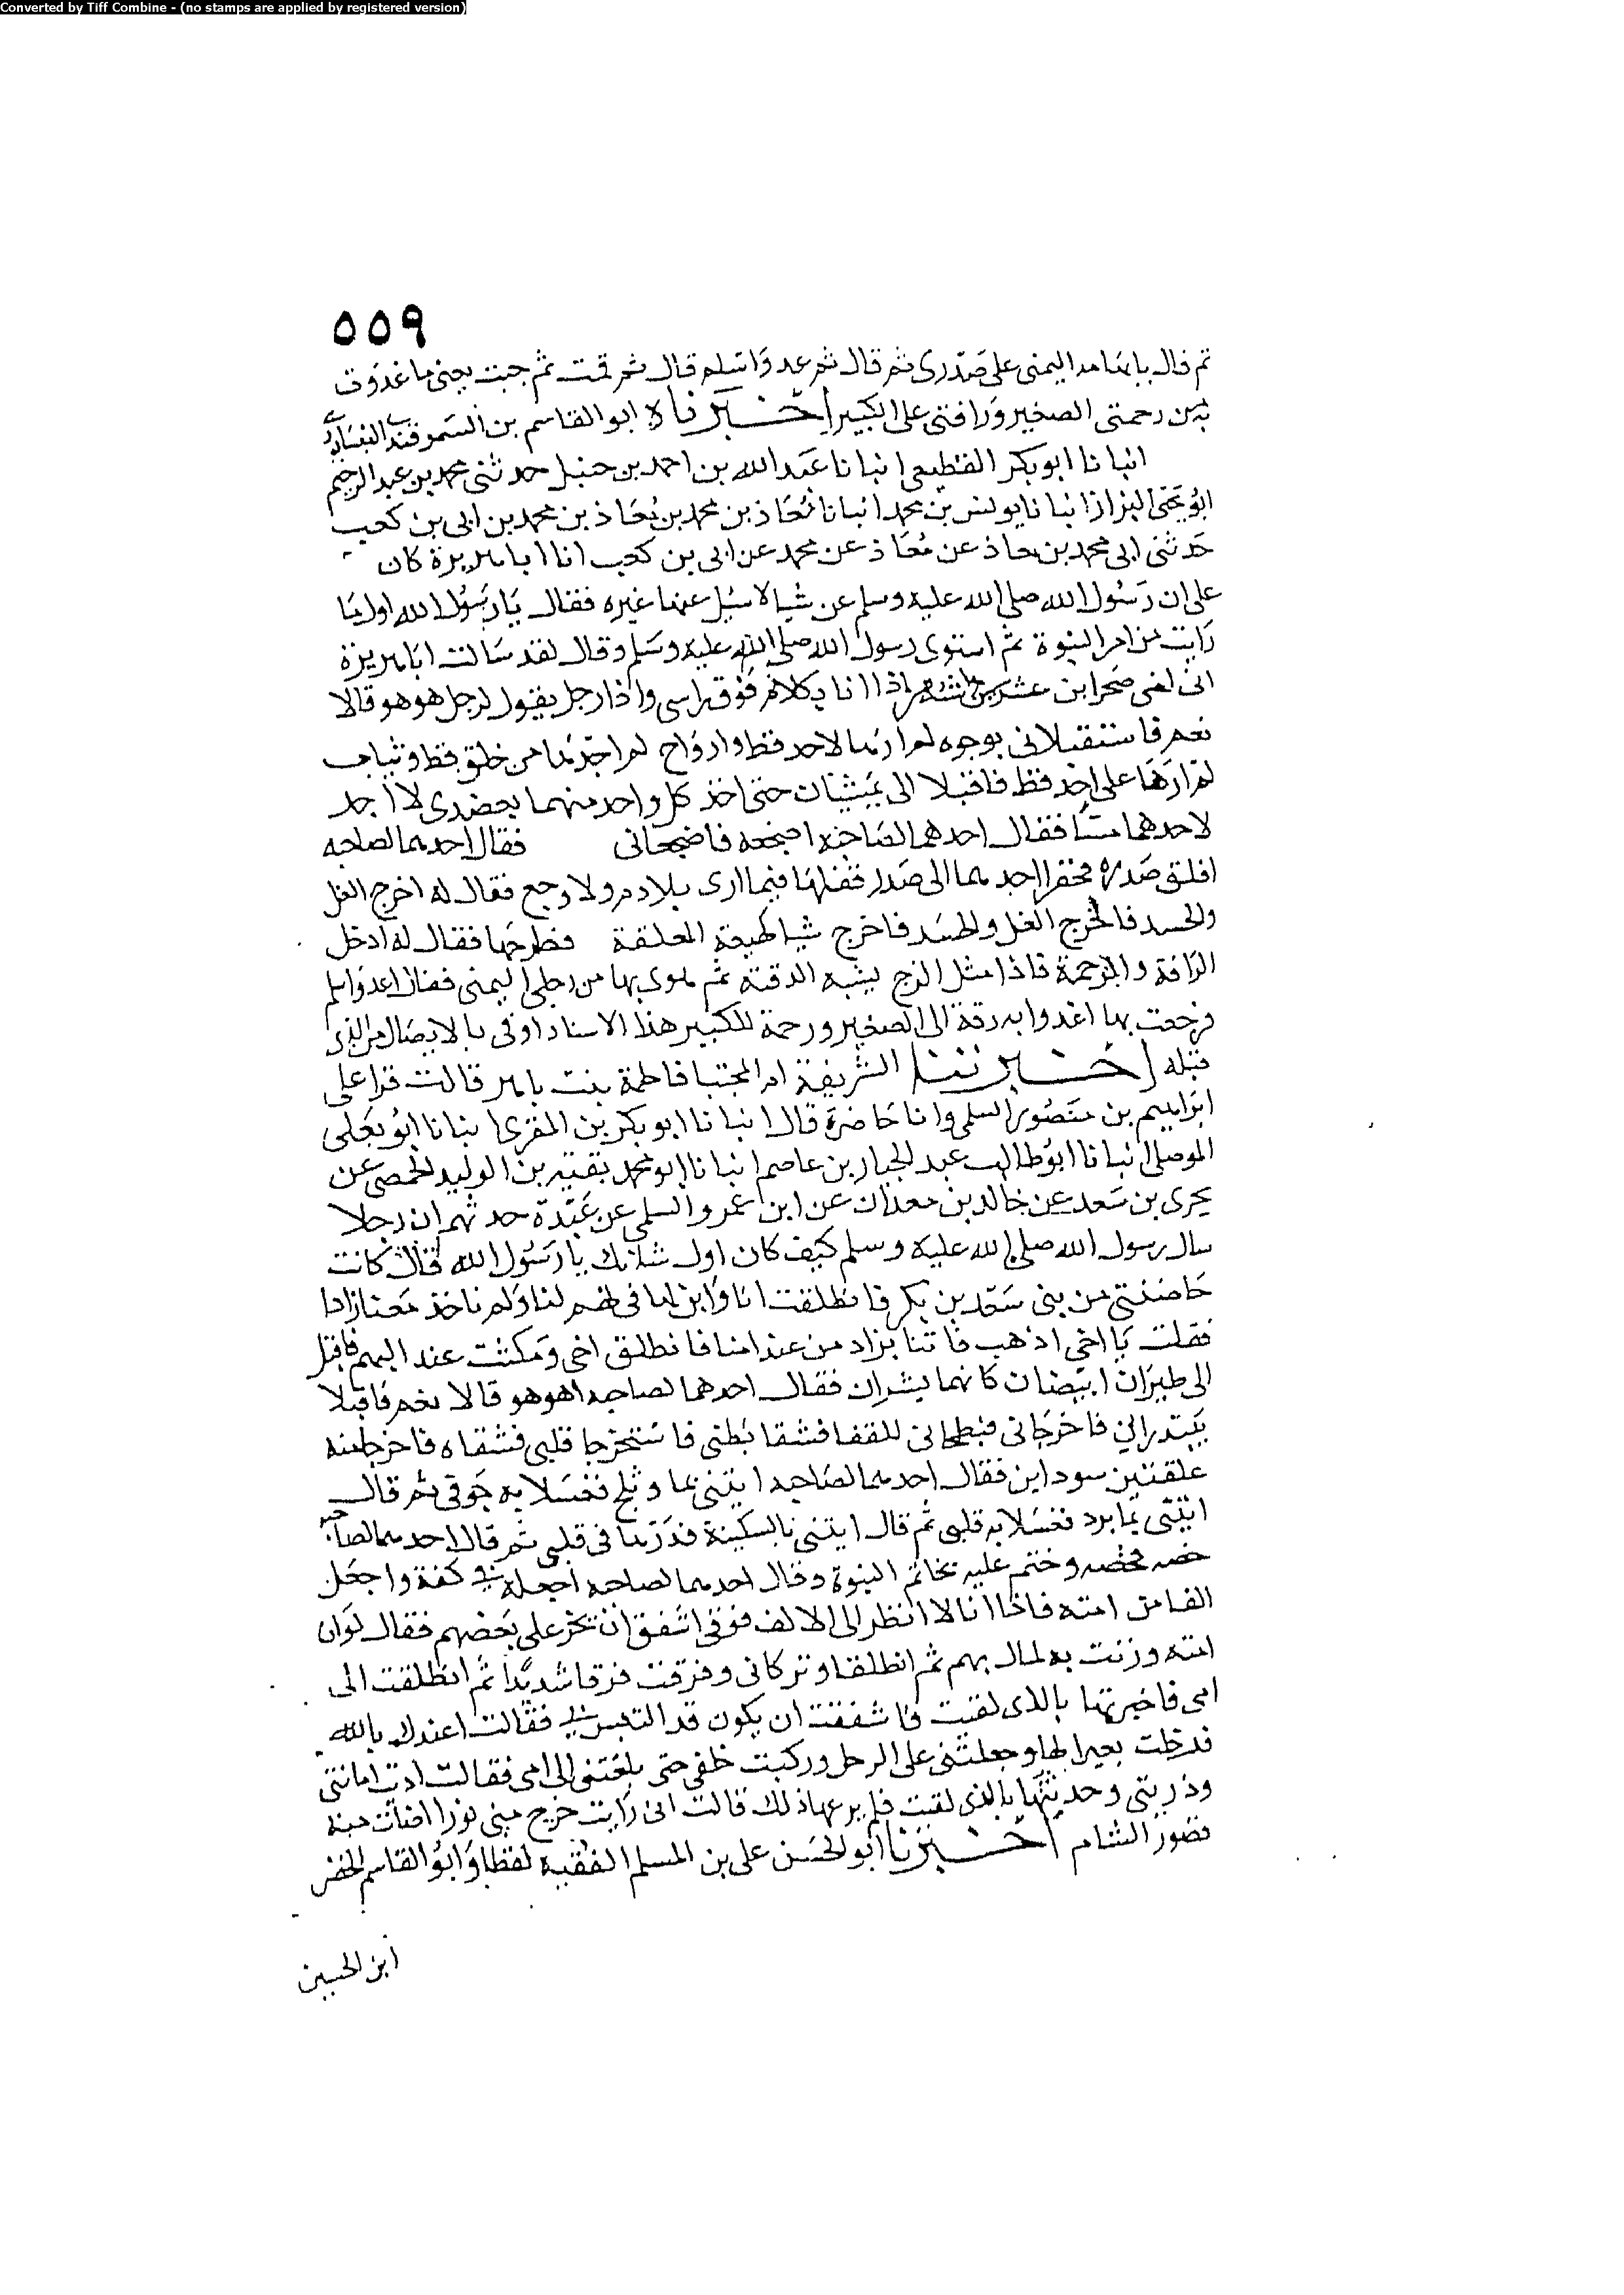 Converted by Tiff Combine - (no stamps are applied by registered version)
٥٥٩
ثم قال بابهامه اليمنى على صدرى ثم قال ثم عد واسلم قال ثم قمت ثم جئت بجنى ما غدوت
به من رحمتى الصغير ورافتى على الكبير اخبرناه ابو القاسم بن السمرقندى
انبانا ابو بكر القطيعى انبانا عبد الله بن احمد بن حنبل حدثنى محمد بن عبد الرحيم
ابو يحيى البزاز انبانا يونس بن محمد انبانا معاذ بن محمد بن معاذ بن محمد بن ابى بن كعب
حدثنى ابى محمد بن معاذ عن معاذ عن محمد عن ابى بن كعب ان ابا هريرة كان
على ان رسول الله صلى الله عليه وسلم عن شيا لا سيل عنها غيره فقال يا رسول الله اول ما
رايت من امر النبوة ثم استوى رسول الله صلى الله عليه وسلم وقال لقد سالت ابا هريرة
انى لفى صحرا ابن عشر اذا انا بكلام فوق راسى واذا رجل يقول لرجل هو هو قالا
نعم فاستقبلانى بوجوه لم ارها لاحد قط وارواح لم اجدها من خلق قط وثياب
لم ارها على احد قط فاقبلا الى يمشيان حتى اخذ كل واحد منهما بعضدى لا اجد
لاحدهما مسا فقال احدهما لصاحبه اضجعه فاضجعانى فقال احدهما لصاحبه
افلق صدره فحفر احدهما الى صدر ففلقها فيما ارى بلا دم ولا وجع فقال له اخرج الغل
والحسد فاخرج الغل والحسد فاخرج شيا كهيئة العلقة فطرحها فقال له ادخل
الرافة والرحمة فاذا مثل الذى يشبه ثم هوى بها من رجلى اليمنى فقال اغد واسلم
فرجعت بها اغدوا به رقة الى الصغير ورحمة للكبير هذا الاسناد اوفى بالاتصال من الذى
قبله اخبرتنا الشريفة ام المجتبا فاطمة بنت ناصر قالت قرا على
ابراهيم بن منصور السلمى وانا حاضرة قال انبانا ابو بكر بن المقرى انبانا ابو يعلى
الموصلى انبانا ابو طالب عبد الجبار بن عاصم انبانا ابو محمد بقية بن الوليد الحمصى عن
بحرى بن سعد عن خالد بن معدان عن ابن عمرو السلمى عن عبدة حدثهم ان رجلا
سال رسول الله صلى الله عليه وسلم كيف كان اول شانك يا رسول الله قال كانت
حاضنتى من بنى سعد بن بكر فانطلقت انا وابن لها فى بهم لنا ولم ناخذ معنا زادا
فقلت يا اخى اذهب فاتنا بزاد من عند امنا فانطلق اخى ومكثت عند البهم فاقبل
الى طيران ابيضان كانهما نسران فقال احدهما لصاحبه اهو هو قالا نعم فاقبلا
يبتدرانى فاخرجانى فبطحانى للقفا فشقا بطنى فاستخرجا قلبى فشقاه فاخرجا منه
علقتين سوداين فقال احدهما لصاحبه ايتنى بما وثلج فغسلا به جوفى ثم قال
ايتنى بما برد فغسلا به قلبى ثم قال ايتنى بالسكينة فذرها فى قلبى ثم قال احدهما لصاحبه
خصه فخصه وختم عليه بخاتم النبوة وقال احدهما لصاحبه اجعله فى كفة واجعل
الفا من امته فاذا انا لا انظر الى الالف فوقى اشفق ان تخر على بعضهم فقال لو ان
امته وزنت به لمال بهم ثم انطلقا وتركانى وفرقت فرقا شديدا ثم انطلقت الى
امى فاخبرتها بالذى لقيت فاشفقت ان يكون قد التبس بى فقالت اعيذك بالله
فرحلت بعيرا لها وجعلتنى على الرحل وركبت خلفى حتى بلغتنى الى امى فقالت اديت امانتى
وذريتى وحدثتها بالذى لقيت فلم يرعها ذلك قالت انى رايت خرج منى نورا اضات منه
قصور الشام اخبرنا ابو الحسن على بن المسلم الفقيه لفظا وابو القاسم الخضر
ابن الحسين